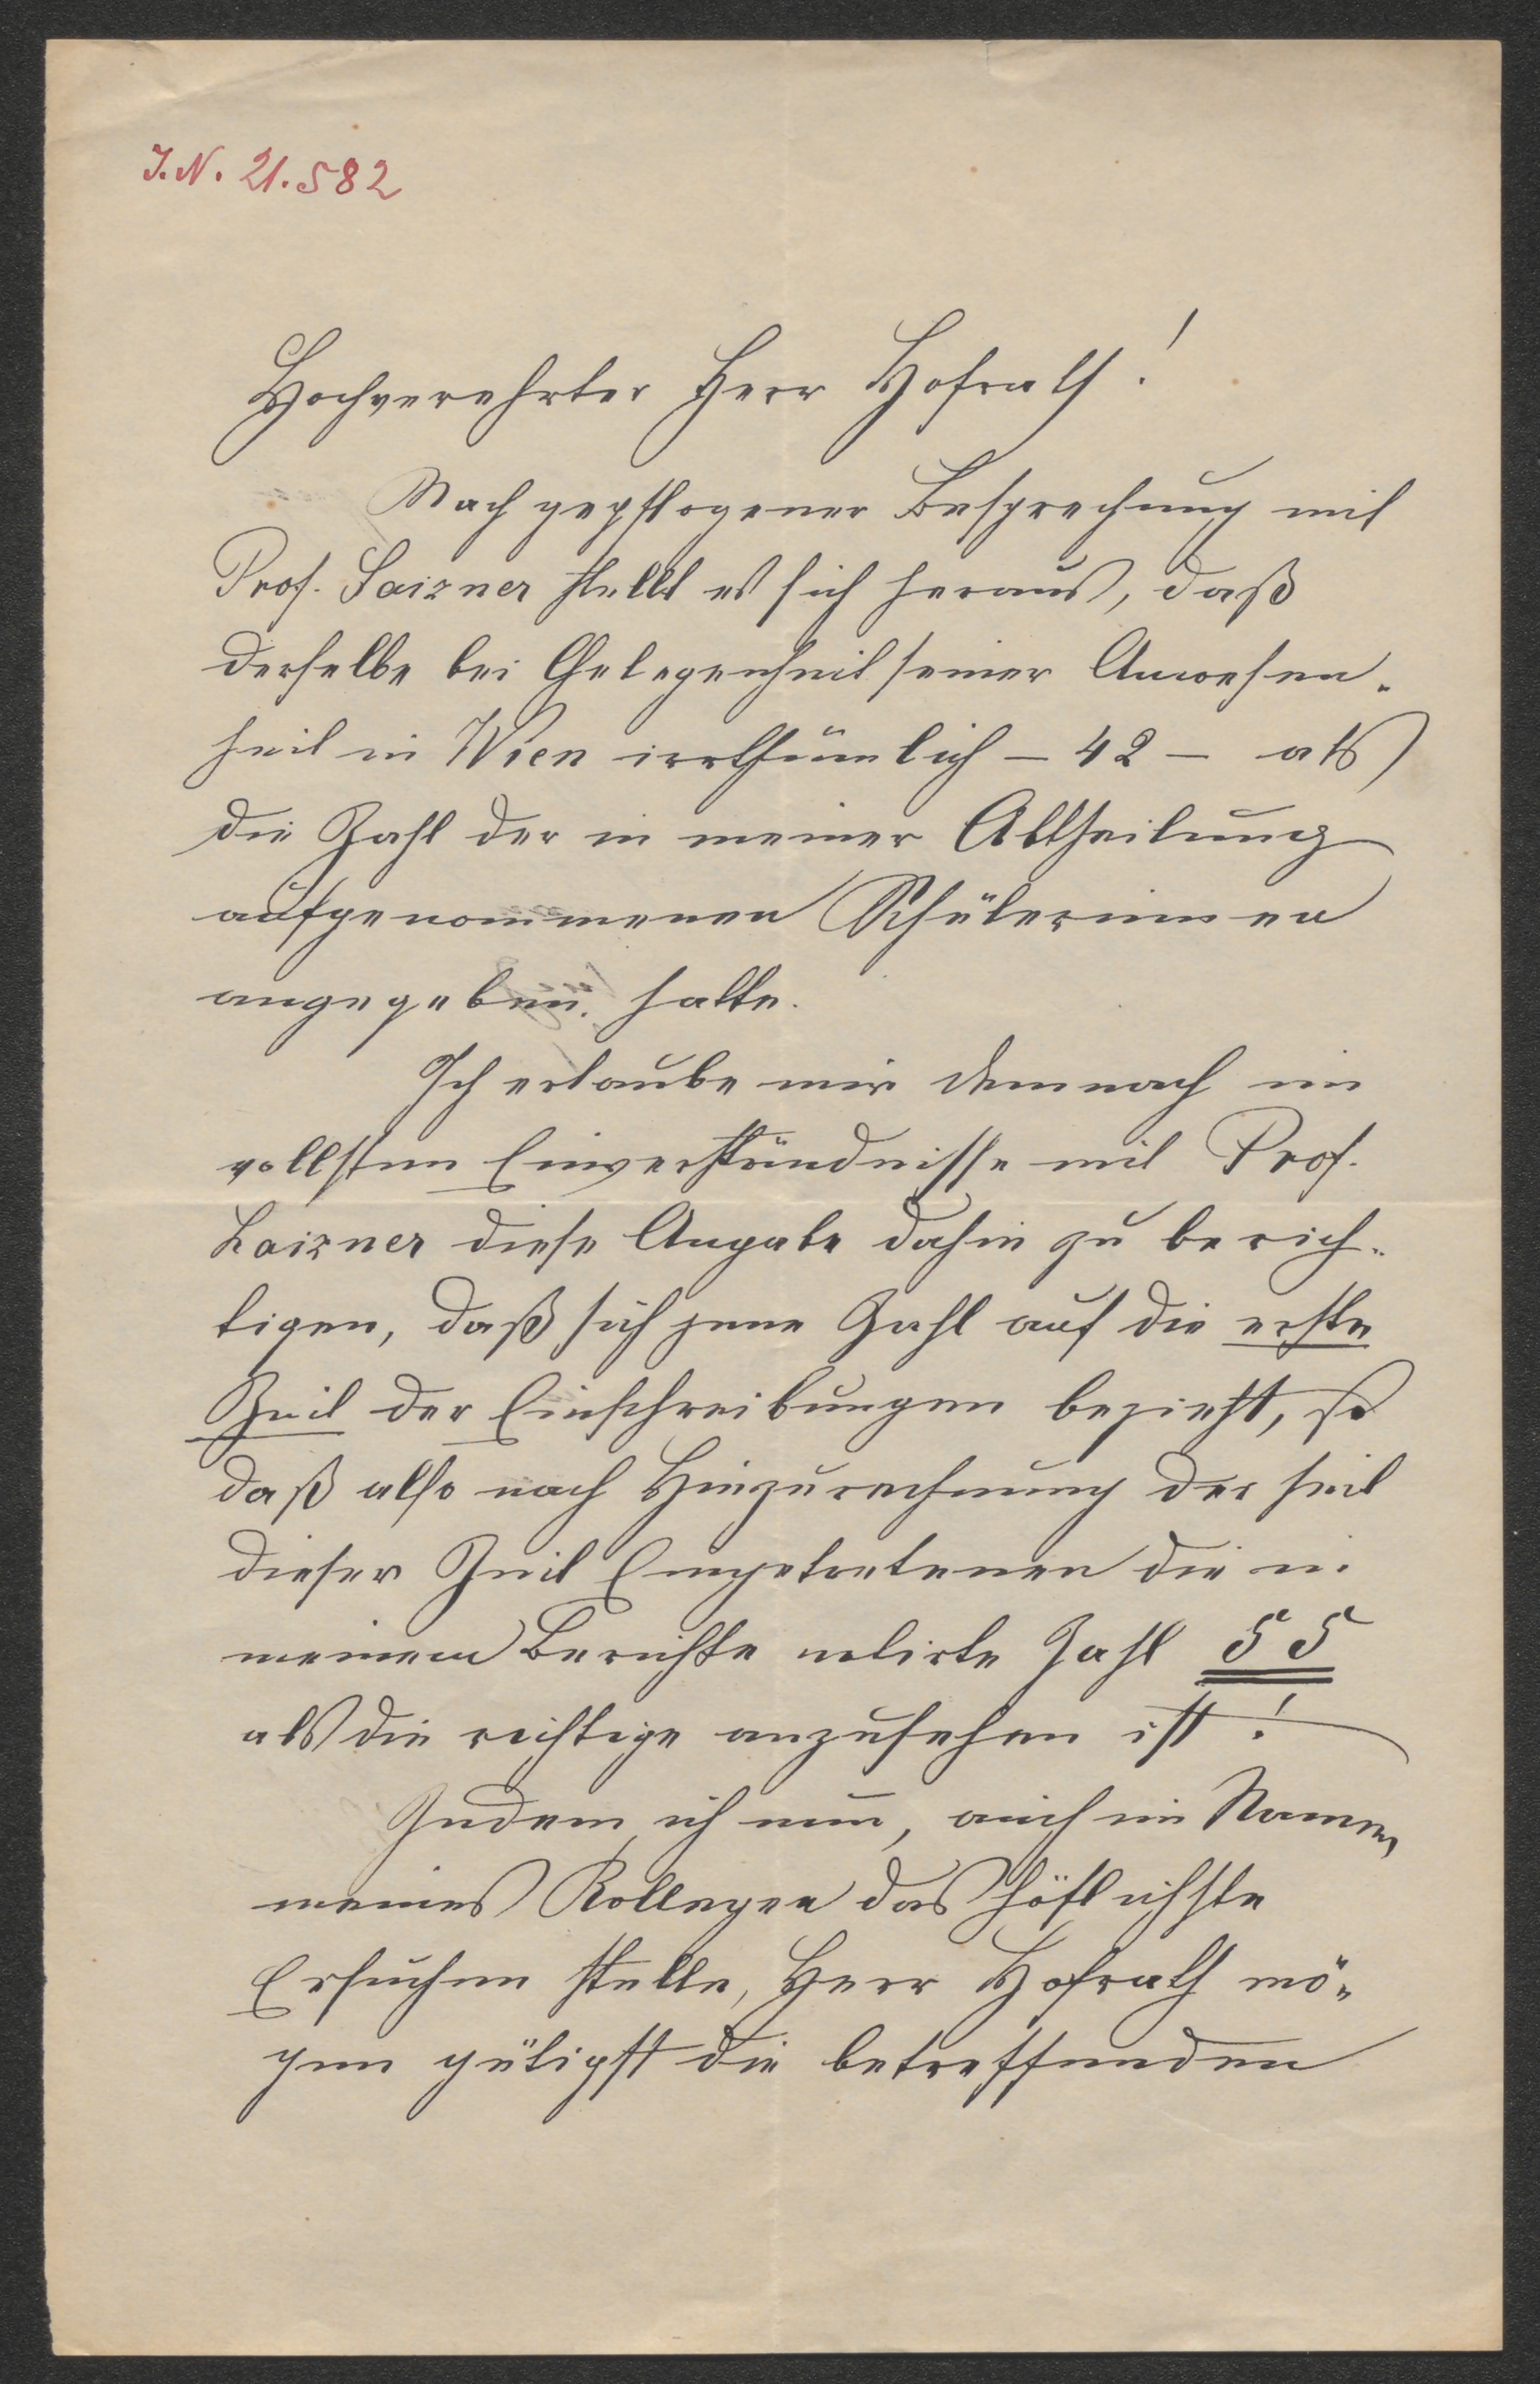 J.N. 21.582
Hochverehrter Herr Hofrath!
Nach gepflogener Besprechung mit
Prof. Laizner stellt es sich heraus, daß
derselbe bei Gelegenheit seiner Anwesen-
heit in Wien irrthümlich – 42 – als
die Zahl der in meiner Abtheilung
aufgenommenen Schülerinnen
angegeben hatte.
Ich erlaube mir demnach im
vollsten Einverständnisse mit Prof.
Laizner diese Angabe dahin zu berich-
tigen, daß sich jene Zahl auf die erste
Zeit der Einschreibungen bezieht, so
daß also nach Hinzurechnung der seit
dieser Zeit Eingetretenen die in
meinem Berichte Zahl 55
als die richtige anzusehen ist!
Indem ich nun, auch im Namen
meines Kollegen das höflichste
Ersuchen stelle, Herr Hofrath mö-
gen gütigst die betreffenden